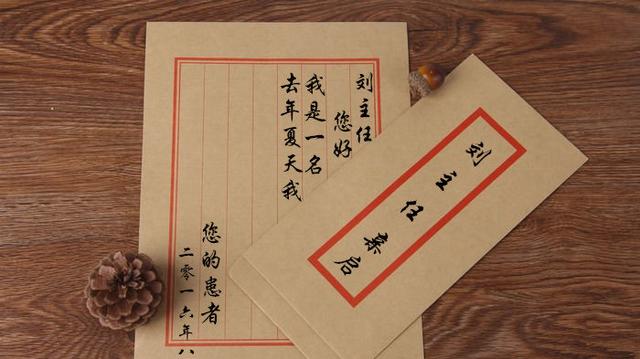 刘主任
您好
我是一名
去年夏天我
您的患者
二零一六年八
刘主任亲启